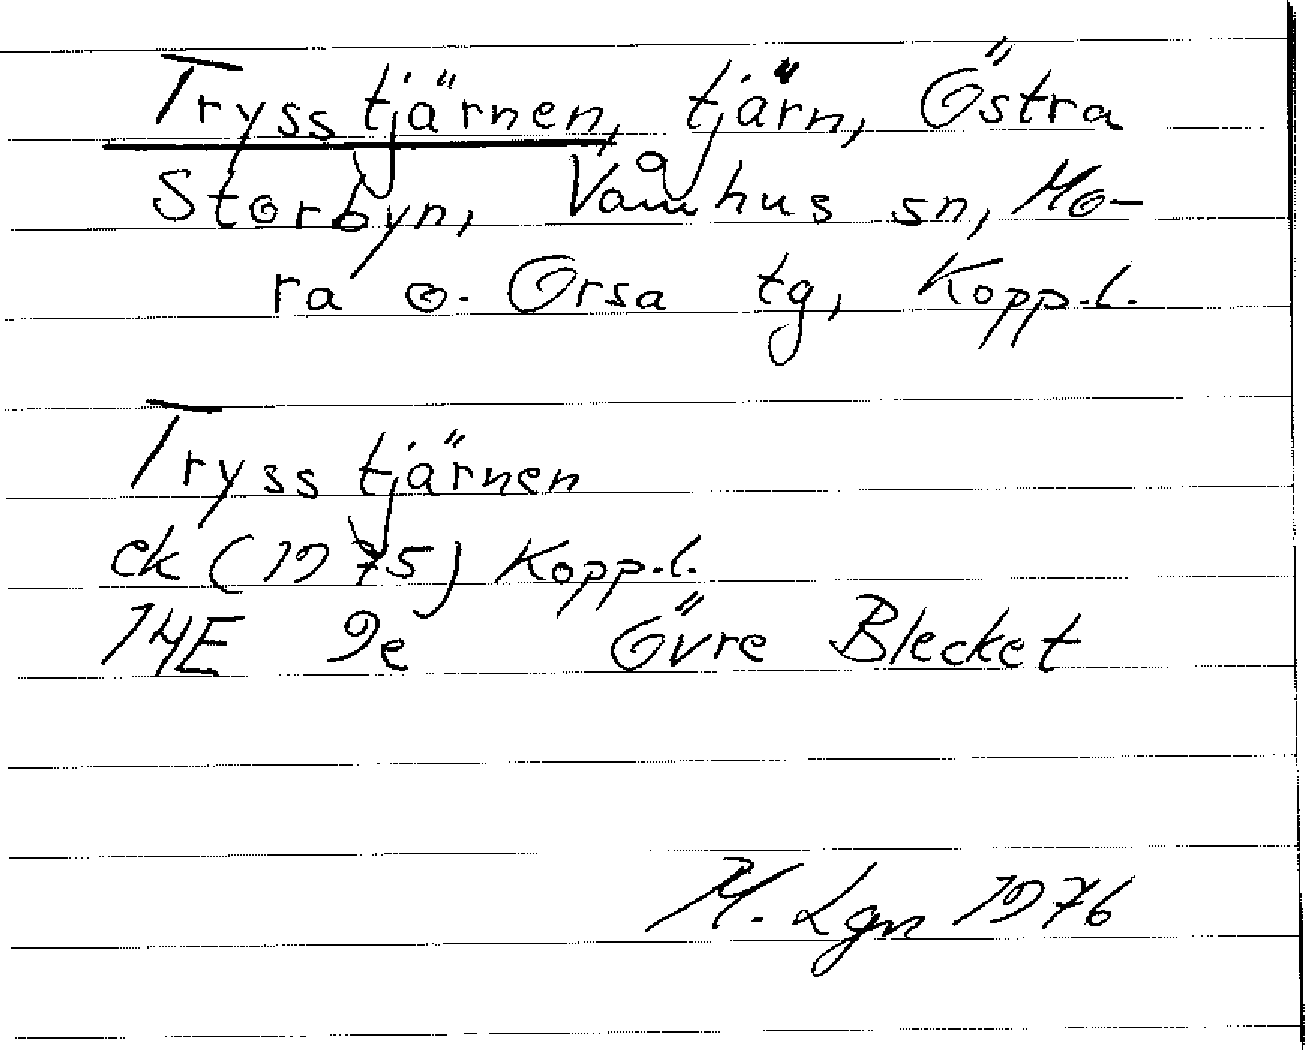 Trysstjärnen, tjärn, Östra
Storbyn, Våmhus sn, Mo-
ra o. Orsa tg, Kopp.l.
Trysstjärnen
ek (1975) Kopp.l.
14E 9e Övre Blecket
M. Lgn 1976